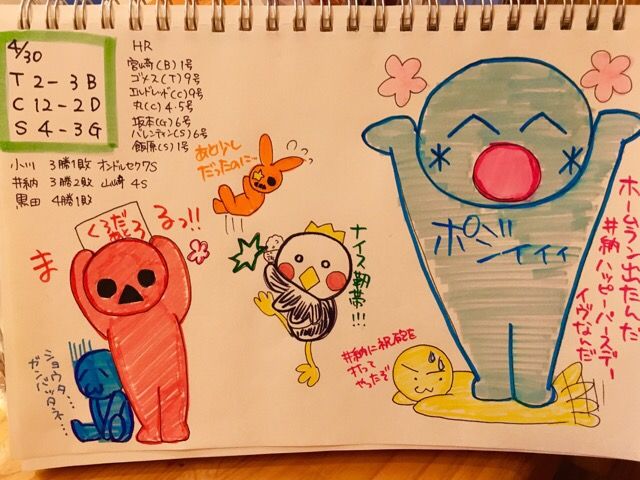 4/30
T 2-3 B
C 12-2 D
S 4-3 G
HR
宮﨑(B)1号
ゴメス(T)9号
エルドレッド(C)9号
丸(C)4・5号
坂本(G)6号
バレンティン(S)6号
飯原(S)1号
小川 3勝1敗 オンドルセク7S
井納 3勝2敗 山﨑 4S
黒田 4勝1敗
あと少し
だったのに…
くろだ
ま
るっ!!
ショウタ…
ガンバッタネ…
ナイス靭帯!!!
ポジ
ンイィィ
井納に祝砲を
打って
やったぞ
ホームラン出たんだ
井納ハッピーバースデー
イヴなんだ